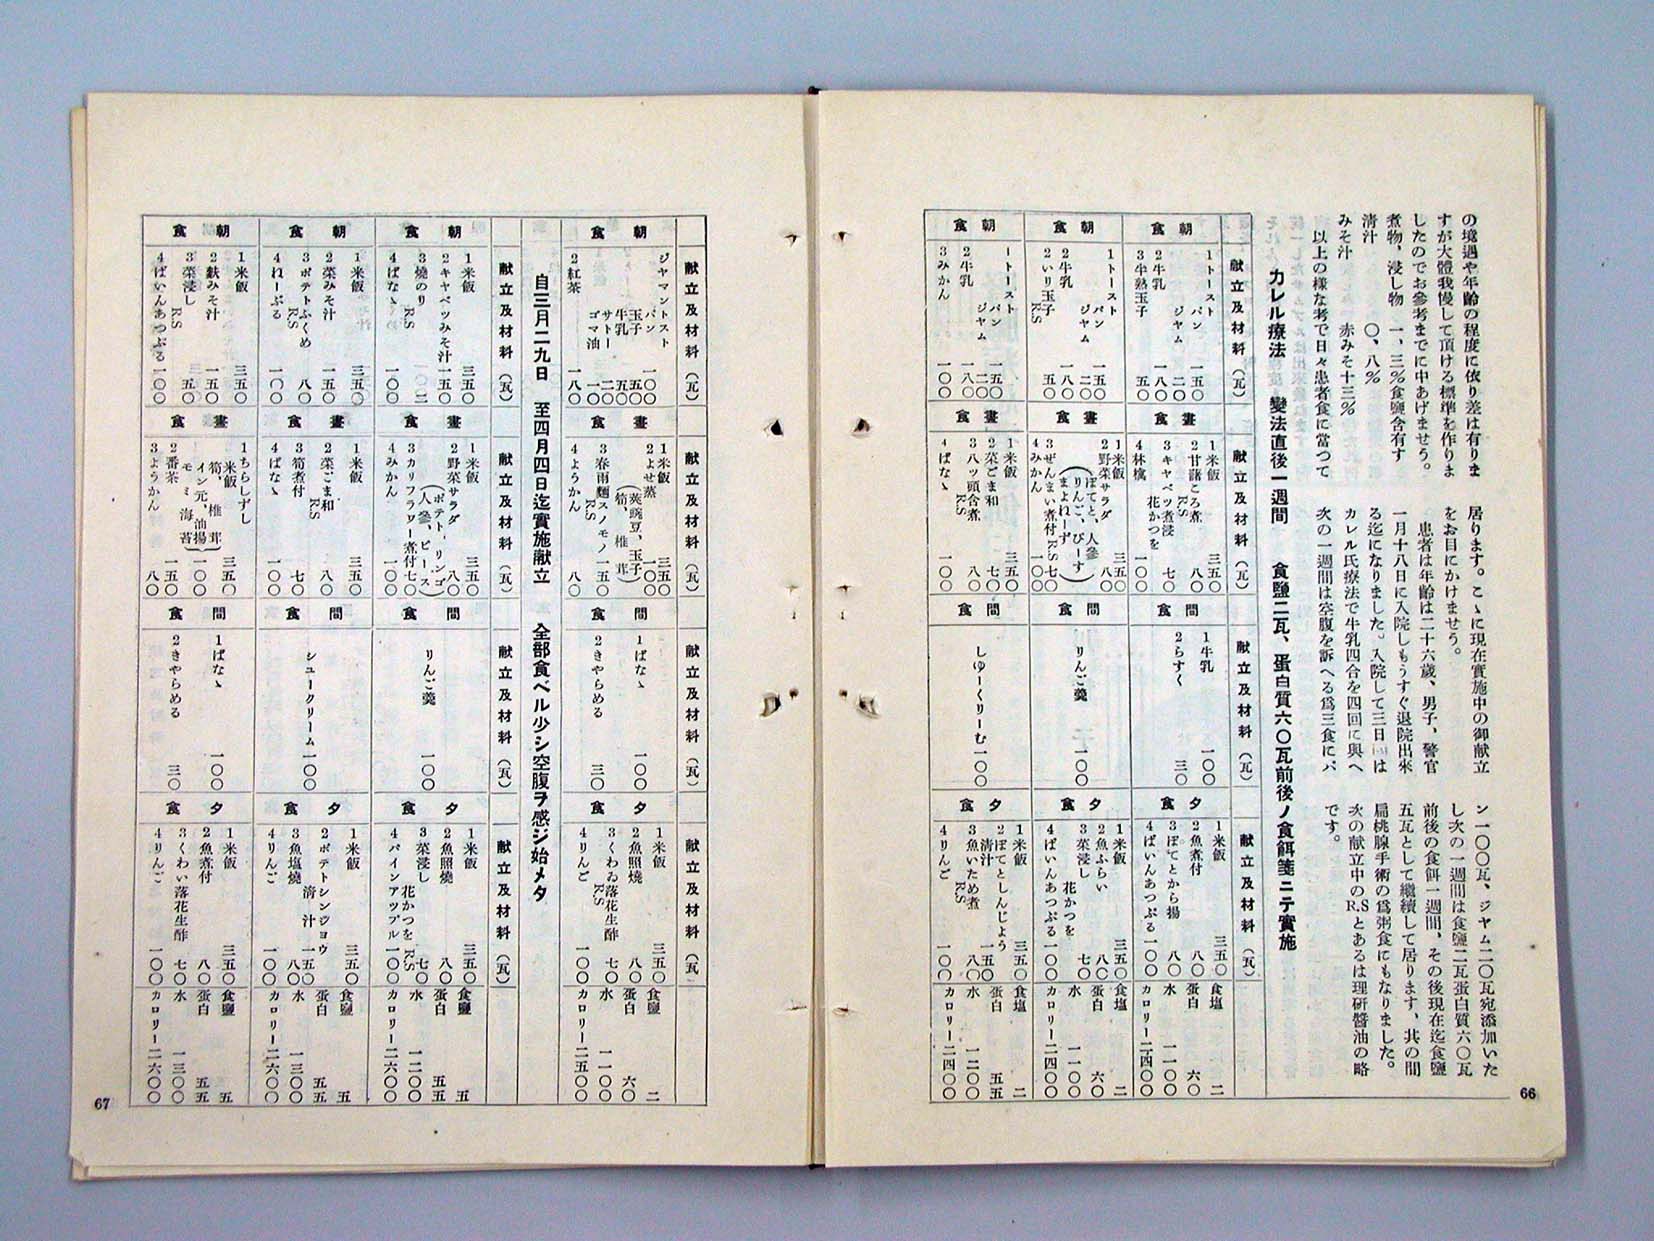 の境遇や年齢の程度に依り差は有りま
すが大體我慢して頂ける標準を作りま
したのでお參考までに申あげませう。
煮物、浸し物 一、三%食鹽含有す
淸汁 〇、八%
みそ汁 赤みそ十三%
以上の様な考で日々患者食に當つて
居ります。こゝに現在實施中の御献立
をお目にかけませう。
患者は年齢は二十六歳、男子、警官
一月十八日に入院しもうすぐ退院出來
る迄になりました。入院して三日は
カレル氏療法で牛乳四合を四回に與へ
次の一週間は空腹を訴へる爲三食にパ
ン一〇〇瓦、ジヤム二〇瓦宛添加いた
し次の一週間は食鹽二瓦蛋白質六〇瓦
前後の食餌一週間、その後現在迄食鹽
五瓦として繼續して居ります、其の間
扁桃腺手術の爲粥食にもなりました。
次の献立中のR.Sとあるは理研醬油の略
です。
カレル療法 變法直後一週間 食鹽二瓦、蛋白質六〇瓦前後ノ食餌箋ニテ實施
献立及材料(瓦) 献立及材料(瓦) 献立及材料(瓦) 献立及材料(瓦)
朝食
1トースト
パン 一五〇
ジヤム 二〇
2牛乳 一八〇
3半熟玉子 五〇
晝食
1米飯 三五〇
2甘藷ころ煮 八〇
R.S
3キャベツ煮浸 七〇
花かつを
4林檎 一〇〇
間食
1牛乳 一〇〇
2らすく 三〇
夕食
1米飯 三五〇
2魚煮付 八〇
3ぽてとから揚
4ぱいんあつぷる 一〇〇
食塩 二
蛋白 六〇
水 一一〇〇
カロリー 二四〇〇
朝食
1トースト
パン 一五〇
ジヤム 二〇
2牛乳 一八〇
2いり玉子 五〇
R.S
晝食
1米飯 三五〇
2野菜サラダ 八〇
(ぽてと、人參
りんご、びーす
まよねーず)
3ぜんまい煮付R.S 七〇
4みかん 一〇〇
間食
りんご羹 一〇〇
夕食
1米飯 三五〇
2魚ふらい 八〇
3菜浸し 七〇
花かつを
4ぱいんあつぷる 一〇〇
食塩 二
蛋白 六〇
水 一一〇〇
カロリー 二四〇〇
朝食
1トースト
パン 一五〇
ジヤム 二〇
2牛乳 一八〇
3みかん 一〇〇
晝食
1米飯 三五〇
2菜ごま和 七〇
R.S
3八ッ頭含煮 八〇
R.S
4ばなゝ 一〇〇
間食
しゆーくりーむ 一〇〇
夕食
1米飯 三五〇
2ぽてとしんじよう
淸汁 一五〇
3魚いため煮 八〇
R.S
4りんご 一〇〇
食塩 二
蛋白 五五
水 一二〇〇
カロリー 二四〇〇
66
献立及材料(瓦) 献立及材料(瓦) 献立及材料(瓦) 献立及材料(瓦)
朝食
ジヤマントスト
パン 一〇〇
玉子 五〇
牛乳 五〇
サトー 二〇
ゴマ油 一〇
2紅茶 一八〇
晝食
1米飯 三五〇
2よせ蒸 一〇〇
(莢豌豆、玉子
筍、椎茸)
3春雨麵スノモノ 一五〇
R.S
4ようかん 八〇
間食
1ばなゝ 一〇〇
2きやらめる 三〇
夕食
1米飯 三五〇
2魚照燒 八〇
3くわゐ落花生酢 七〇
R.S
4りんご 一〇〇
食鹽 二
蛋白 六〇
水 一一〇〇
カロリー 二五〇〇
自三月二九日 至四月四日迄實施献立 全部食ベル少シ空腹ヲ感ジ始メタ
献立及材料(瓦) 献立及材料(瓦) 献立及材料(瓦) 献立及材料(瓦)
朝食
1米飯 三五〇
2キャベツみそ汁 一五〇
3燒のり 二
R.S
4ばなゝ 一〇〇
晝食
1米飯 三五〇
2野菜サラダ 八〇
(ポテト、リンゴ
人參、ピース)
3カリフラワー煮付 七〇
4みかん 一〇〇
間食
りんご羹 一〇〇
夕食
1米飯 三五〇
2魚照燒 八〇
3菜浸し 七〇
花かつをR.S
4パインアツプル 一〇〇
食鹽 五
蛋白 五五
水 一二〇〇
カロリー 二六〇〇
朝食
1米飯 三五〇
2菜みそ汁 一五〇
3ポテトふくめ 八〇
R.S
4ねーぶる 一〇〇
晝食
1米飯 三五〇
2菜ごま和 八〇
R.S
3筍煮付 七〇
4ばなゝ 一〇〇
間食
シユークリーム 一〇〇
夕食
1米飯 三五〇
2ポテトシンジョウ
淸汁 一五〇
3魚塩燒 八〇
4りんご 一〇〇
食鹽 五
蛋白 五五
水 一三〇〇
カロリー 二六〇〇
朝食
1米飯 三五〇
2麩みそ汁 一五〇
3菜浸し 五〇
R.S
4ぱいんあつぷる 一〇〇
晝食
1ちらしずし
米飯 三五〇
筍、椎茸
イン元、油揚
モミ海苔 一〇〇
2番茶 一五〇
3ようかん 八〇
間食
1ばなゝ 一〇〇
2きやらめる 三〇
夕食
1米飯 三五〇
2魚煮付 八〇
3くわい落花生酢 七〇
4りんご 一〇〇
食鹽 五
蛋白 五五
水 一三〇〇
カロリー 二六〇〇
67